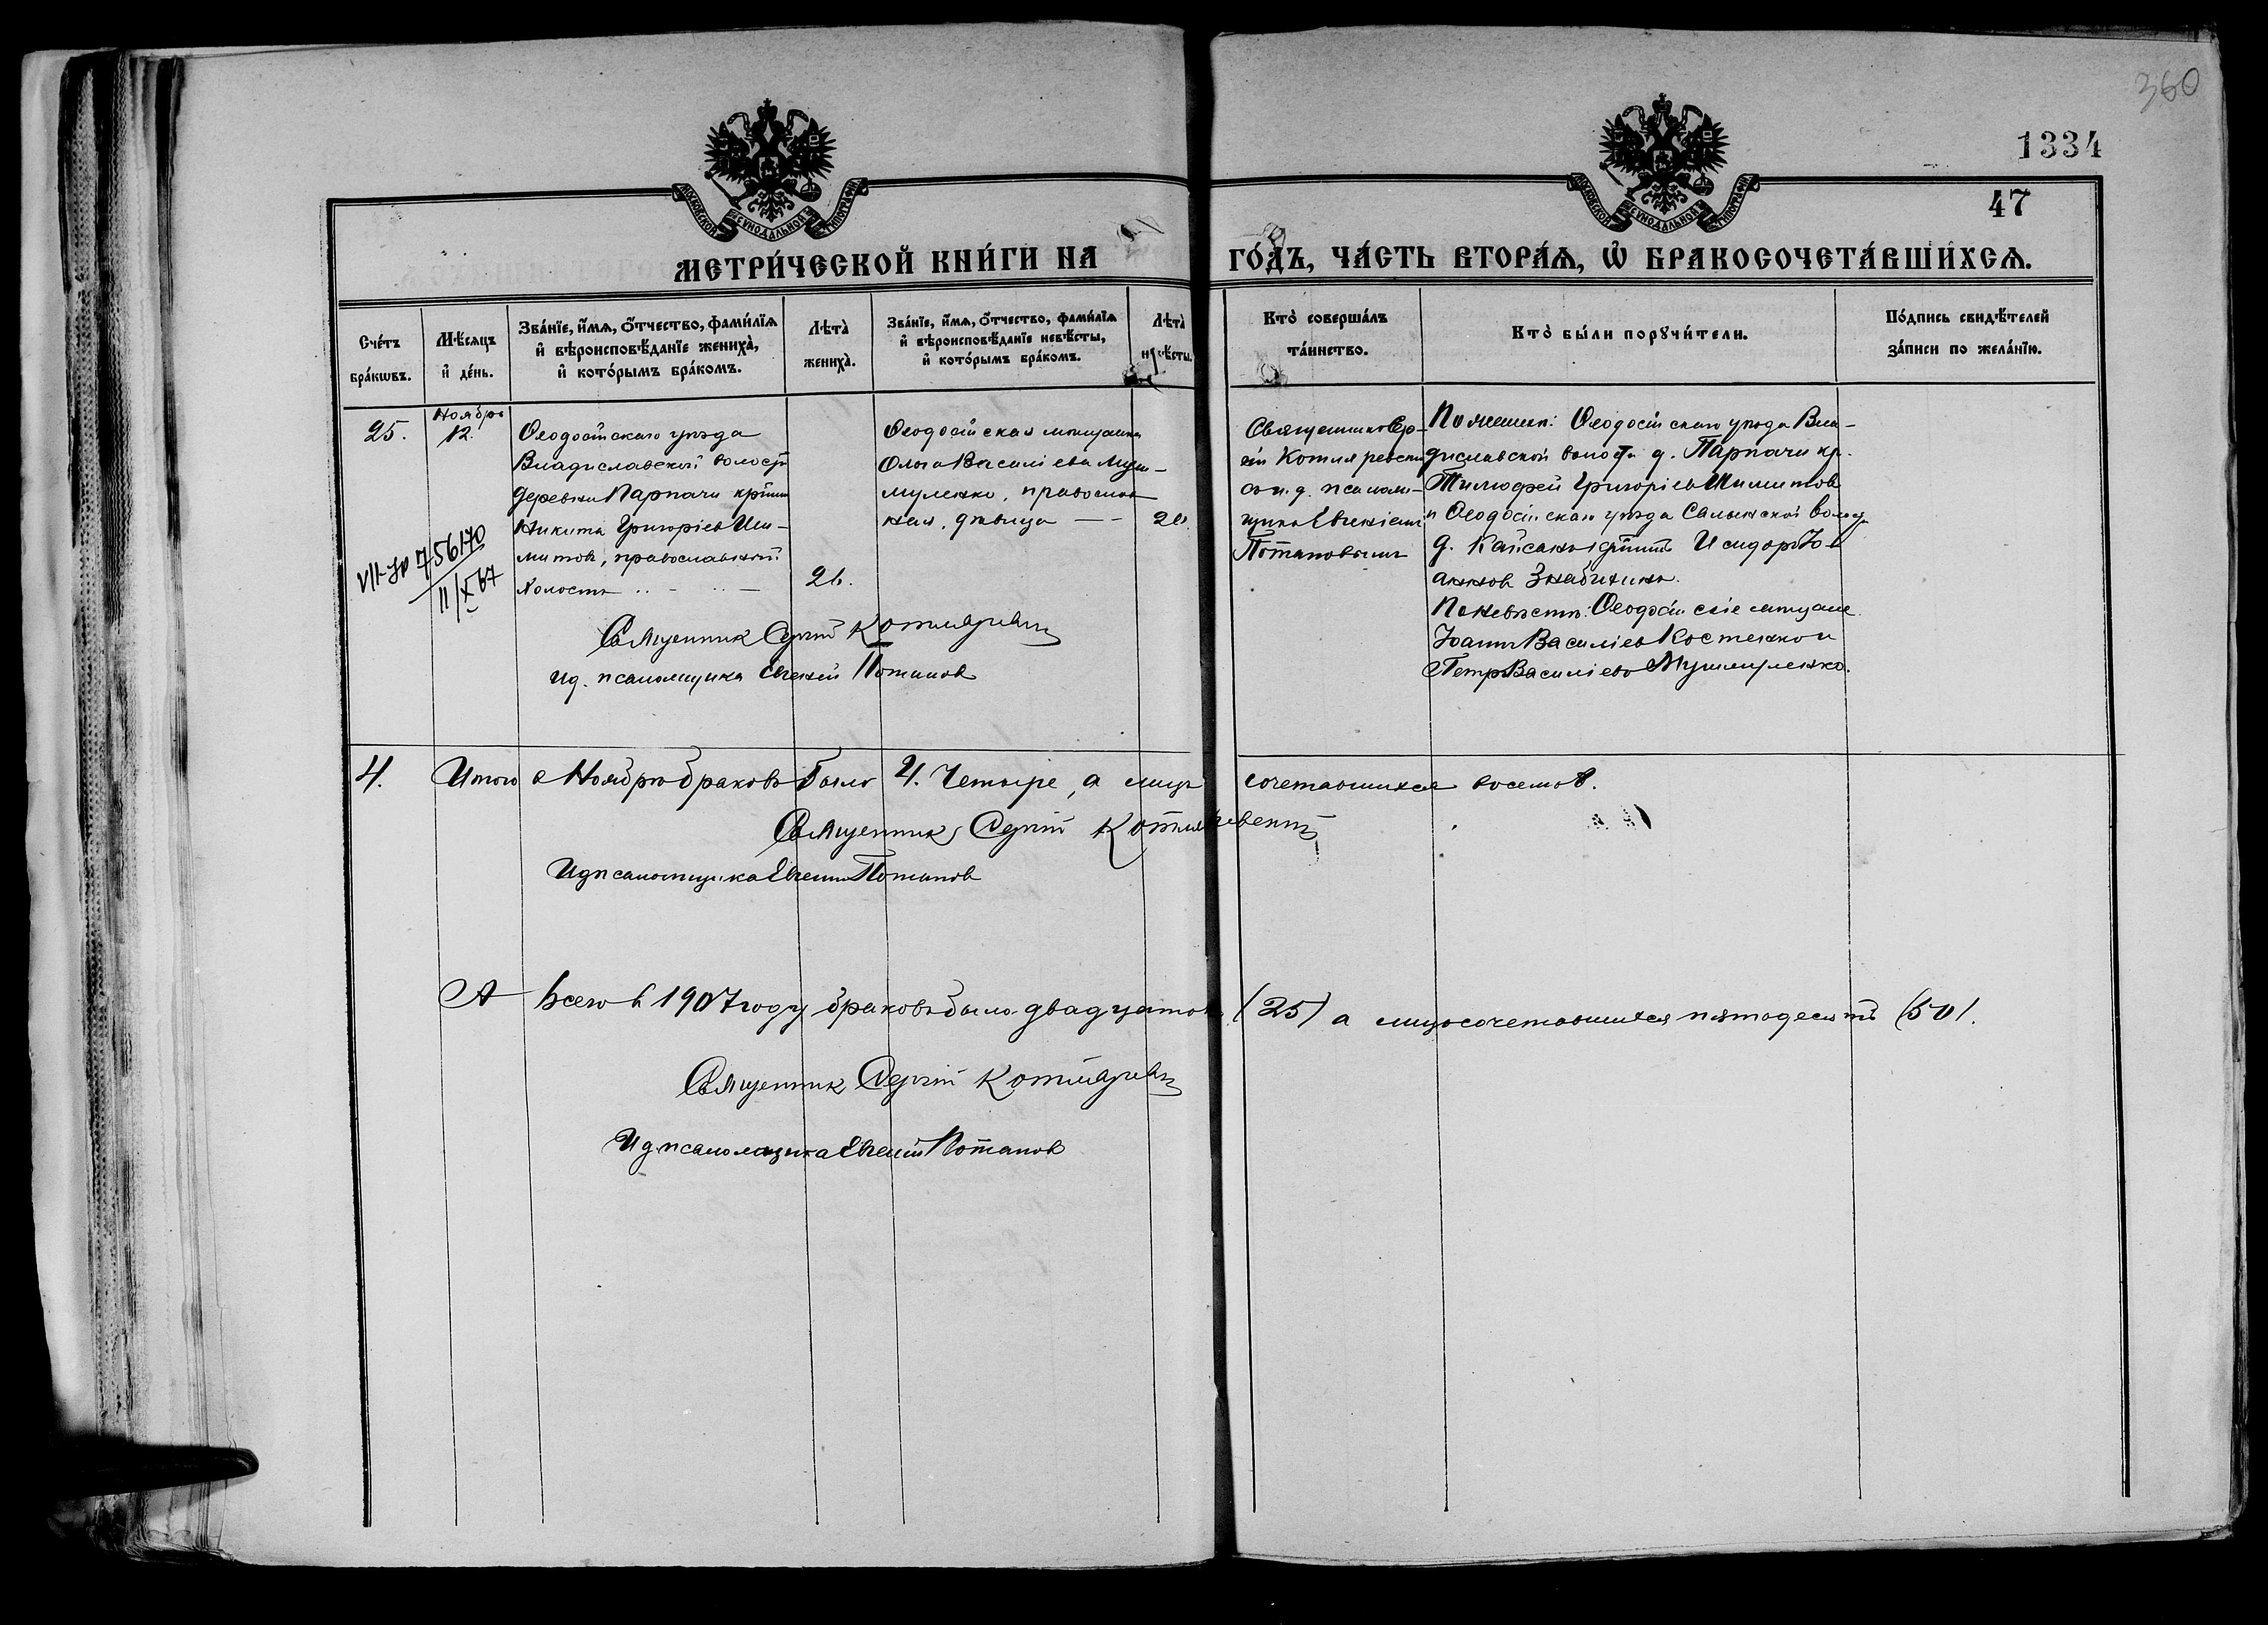 360
1334
47
МОСКОВСКОЙ СУНОДАЛЬНОЙ ТИПОГРАФІИ
МОСКОВСКОЙ СУНОДАЛЬНОЙ ТИПОГРАФІИ
МЕТРИ́ЧЕСКОЙ КНИ́ГИ НА ГО́ДЪ, ЧА́СТЬ ВТОРА́Ѧ, Ѽ БРАКОСОЧЕТА́ВШИХСѦ.
Сче́тъ
бра́кѡвъ.
Мѣ́сяцъ
и҆ де́нь.
Зва́нїе, и҆́мѧ, ѻ҆́тчество, фами́лїѧ
и҆ вѣроисповѣ́данїе жениха̀,
и҆ кото́рымъ бра́комъ.
Лѣта̀
жениха̀.
Зва́нїе, и҆́мѧ, ѻ҆́тчество, фами́лїѧ
и҆ вѣроисповѣ́данїе невѣ́сты,
и҆ кото́рымъ бра́комъ.
Лѣта̀
невѣ́сты.
Кто̀ соверша́лъ
та́инство.
Кто̀ бы́ли порꙋчи́тели.
По́дпись свидѣ́телей
за́писи по жела́нїю.
25.
Ноябрь
12.
Ѳеодосійскаго уѣзда
Владиславской волости
деревни Парпачи крестин
Никита Григоріевъ Ши-
митовъ, православный
холостъ
26.
Ѳеодосійская мѣщанка
Ольга Василіева Муш-
муленко, православ
ная, дѣвица
20.
Священникъ Сер-
гій Котляревскій
съ и. д. псалом-
щика Евгеніемъ
Потаповымъ
По женихѣ: Ѳеодосійскаго уѣзда Вла-
диславской волости д. Парпачи кр.
Тимофей Григоріевъ Шимитовъ
и Ѳеодосійскаго уѣзда Салынской волости
д. Кайсаны крестин Исидоръ Іо-
анновъ Знабихинъ.
По невѣстѣ: Ѳеодосійскіе мѣщане
Іоаннъ Василіевъ Костенко и
Петръ Василіевъ Мушмуленко.
VII-ЯР 756170
11/X 67
Священник Сергій Котляревскій
И.д. псаломщика Евгений Потапов
4. Итого в Ноябрѣ браковъ было 4. Четыре, а лицъ сочетавшихся восемь 8.
Священник Сергій Котляревскій
И д псаломщика Евгений Потапов
А всего в 1907 году браковъ было двадцать (25) а лицъ сочетавшихся пятьдесятъ (50).
Священник Сергій Котляревскій
И д псаломщика Евгеній Потапов